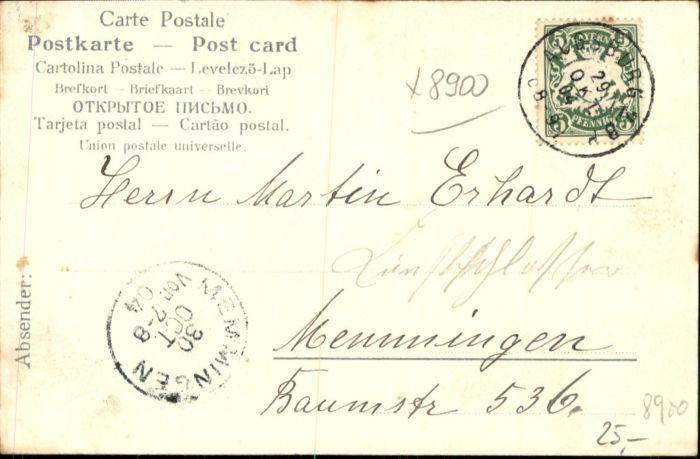 Carte Postale
Postkarte — Post card
Cartolina Postale — Levelező-Lap
Brefkort — Briefkaart — Brevkori
ОТКРЫТОЕ ПИСЬМО.
Tarjeta postal — Cartão postal.
Union postale universelle.
x8900
BAYERN
PFENNIG
AUGSBURG
29
OKT
04
Herrn Martin Erhardt
Kunstschlosser
Memmingen
Baumstr 536.
Absender:
MEMMINGEN
30
OCT
Vorm 7-8
04
8900
25,-